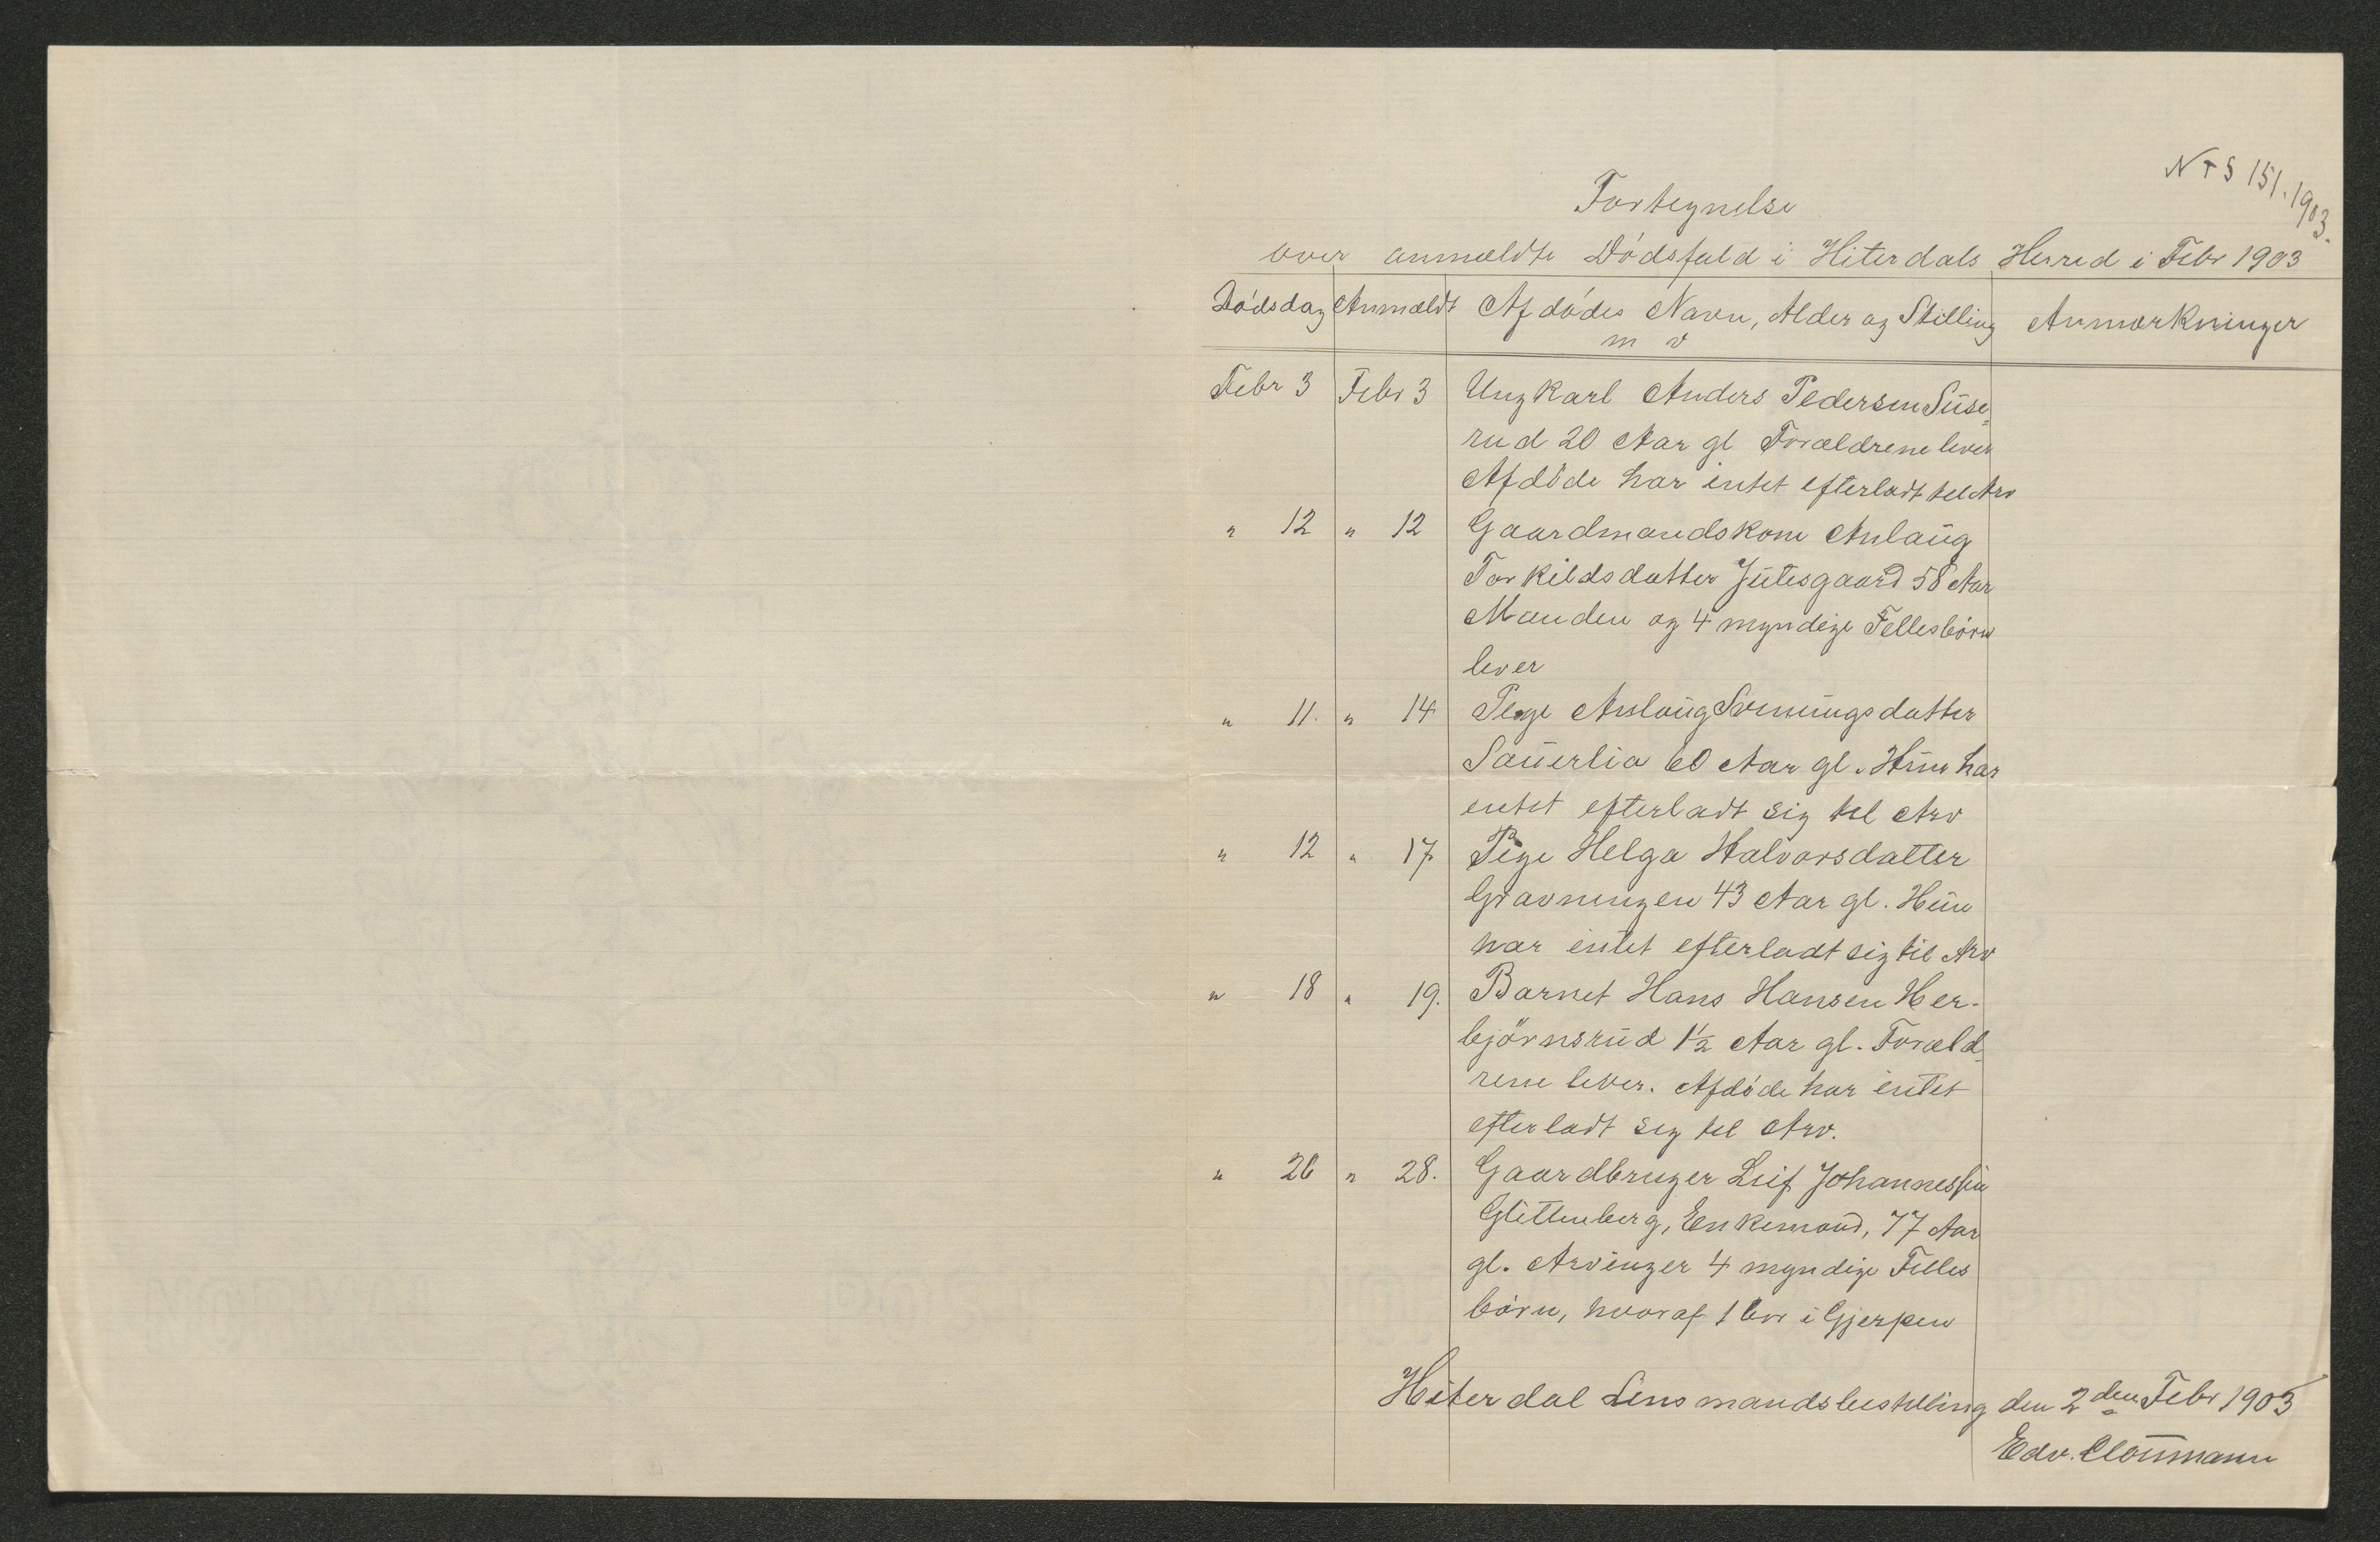 N T S 151. 1903.
Fortegnelse
over anmeldte Dödsfald i Hiterdals Herred i Febr 1903
Dödsdag Anmeldt Afdödes Navn, Alder og Stilling Anmærkninger
m v
Febr 3 Febr 3 Ungkarl Anders Pedersen Suse-
rud 20 Aar gl Forældrene lever
Afdöde har intet efterladt til Arv
" 12 " 12 Gaardmandskone Anlaug
Torkildsdatter Jutesgaard 58 Aar
Manden og 4 myndige Fellesbörn
lever
" 11. " 14 Pige Anlaug Svenungsdatter
Sauerlia 60 Aar gl. Hun har
intet efterladt sig til Arv
" 12 " 17 Pige Helga Halvorsdatter
Gravningen 43 Aar gl. Hun
har intet efterladt sig til Arv
" 18 " 19. Barnet Hans Hansen Her-
björnsrud 1½ Aar gl. Foræld-
rene lever. Afdöde har intet
efterladt sig til Arv.
" 26 " 28. Gaardbruger Leif Johannessen
Glittenberg, Enkemand, 77 Aar
gl. Arvinger 4 myndige Felles
börn, hvoraf 1 bor i Gjerpen
Hiterdal Lensmandsbestilling den 2den Febr 1903
Edv.